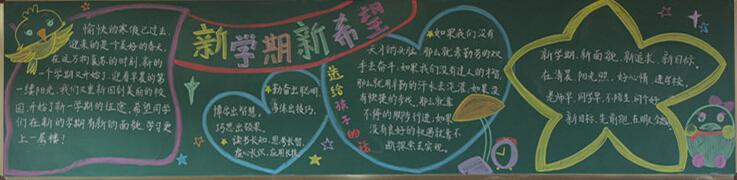 愉快的寒假已过去,
迎来的是个美好的春天,
在这万物复苏的时刻,新的
一个学期又开始了.迎着早晨的第
一缕阳光,我们又重新回到美丽的校
园,开始了新一学期的征途,希望同学
们在新的学期有新的面貌,学习更
上一层楼!
新学期新希望
勤奋出聪明,
多练出技巧,
博学出智慧,
巧思出硕果.
读书长知,思考长智,
虚心长识,应用长技.
送给孩子的话
如果我们没有
天才的头脑,那么就靠勤劳的双
手去奋斗,如果我们没有过人的才智,
那么就用辛勤的汗水去浇灌,如果没
有快捷的步伐,那么就靠
不停的脚步行进,如果
没有良好的机遇就靠不
断探索去实现。
新学期,新面貌,新追求,新目标,
在清晨,阳光 好心情 进学校,
老师早,同学早,不陌生,问个好,
新目标,是前跑,在眼